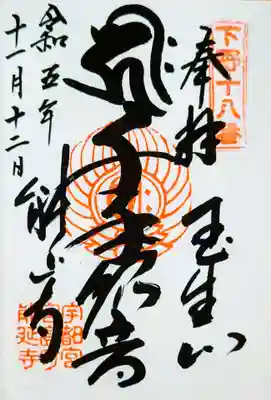 下野十八番
奉拝
玉生山
千手観音
能延寺
令和五年
十一月十二日
宇都宮
能延寺